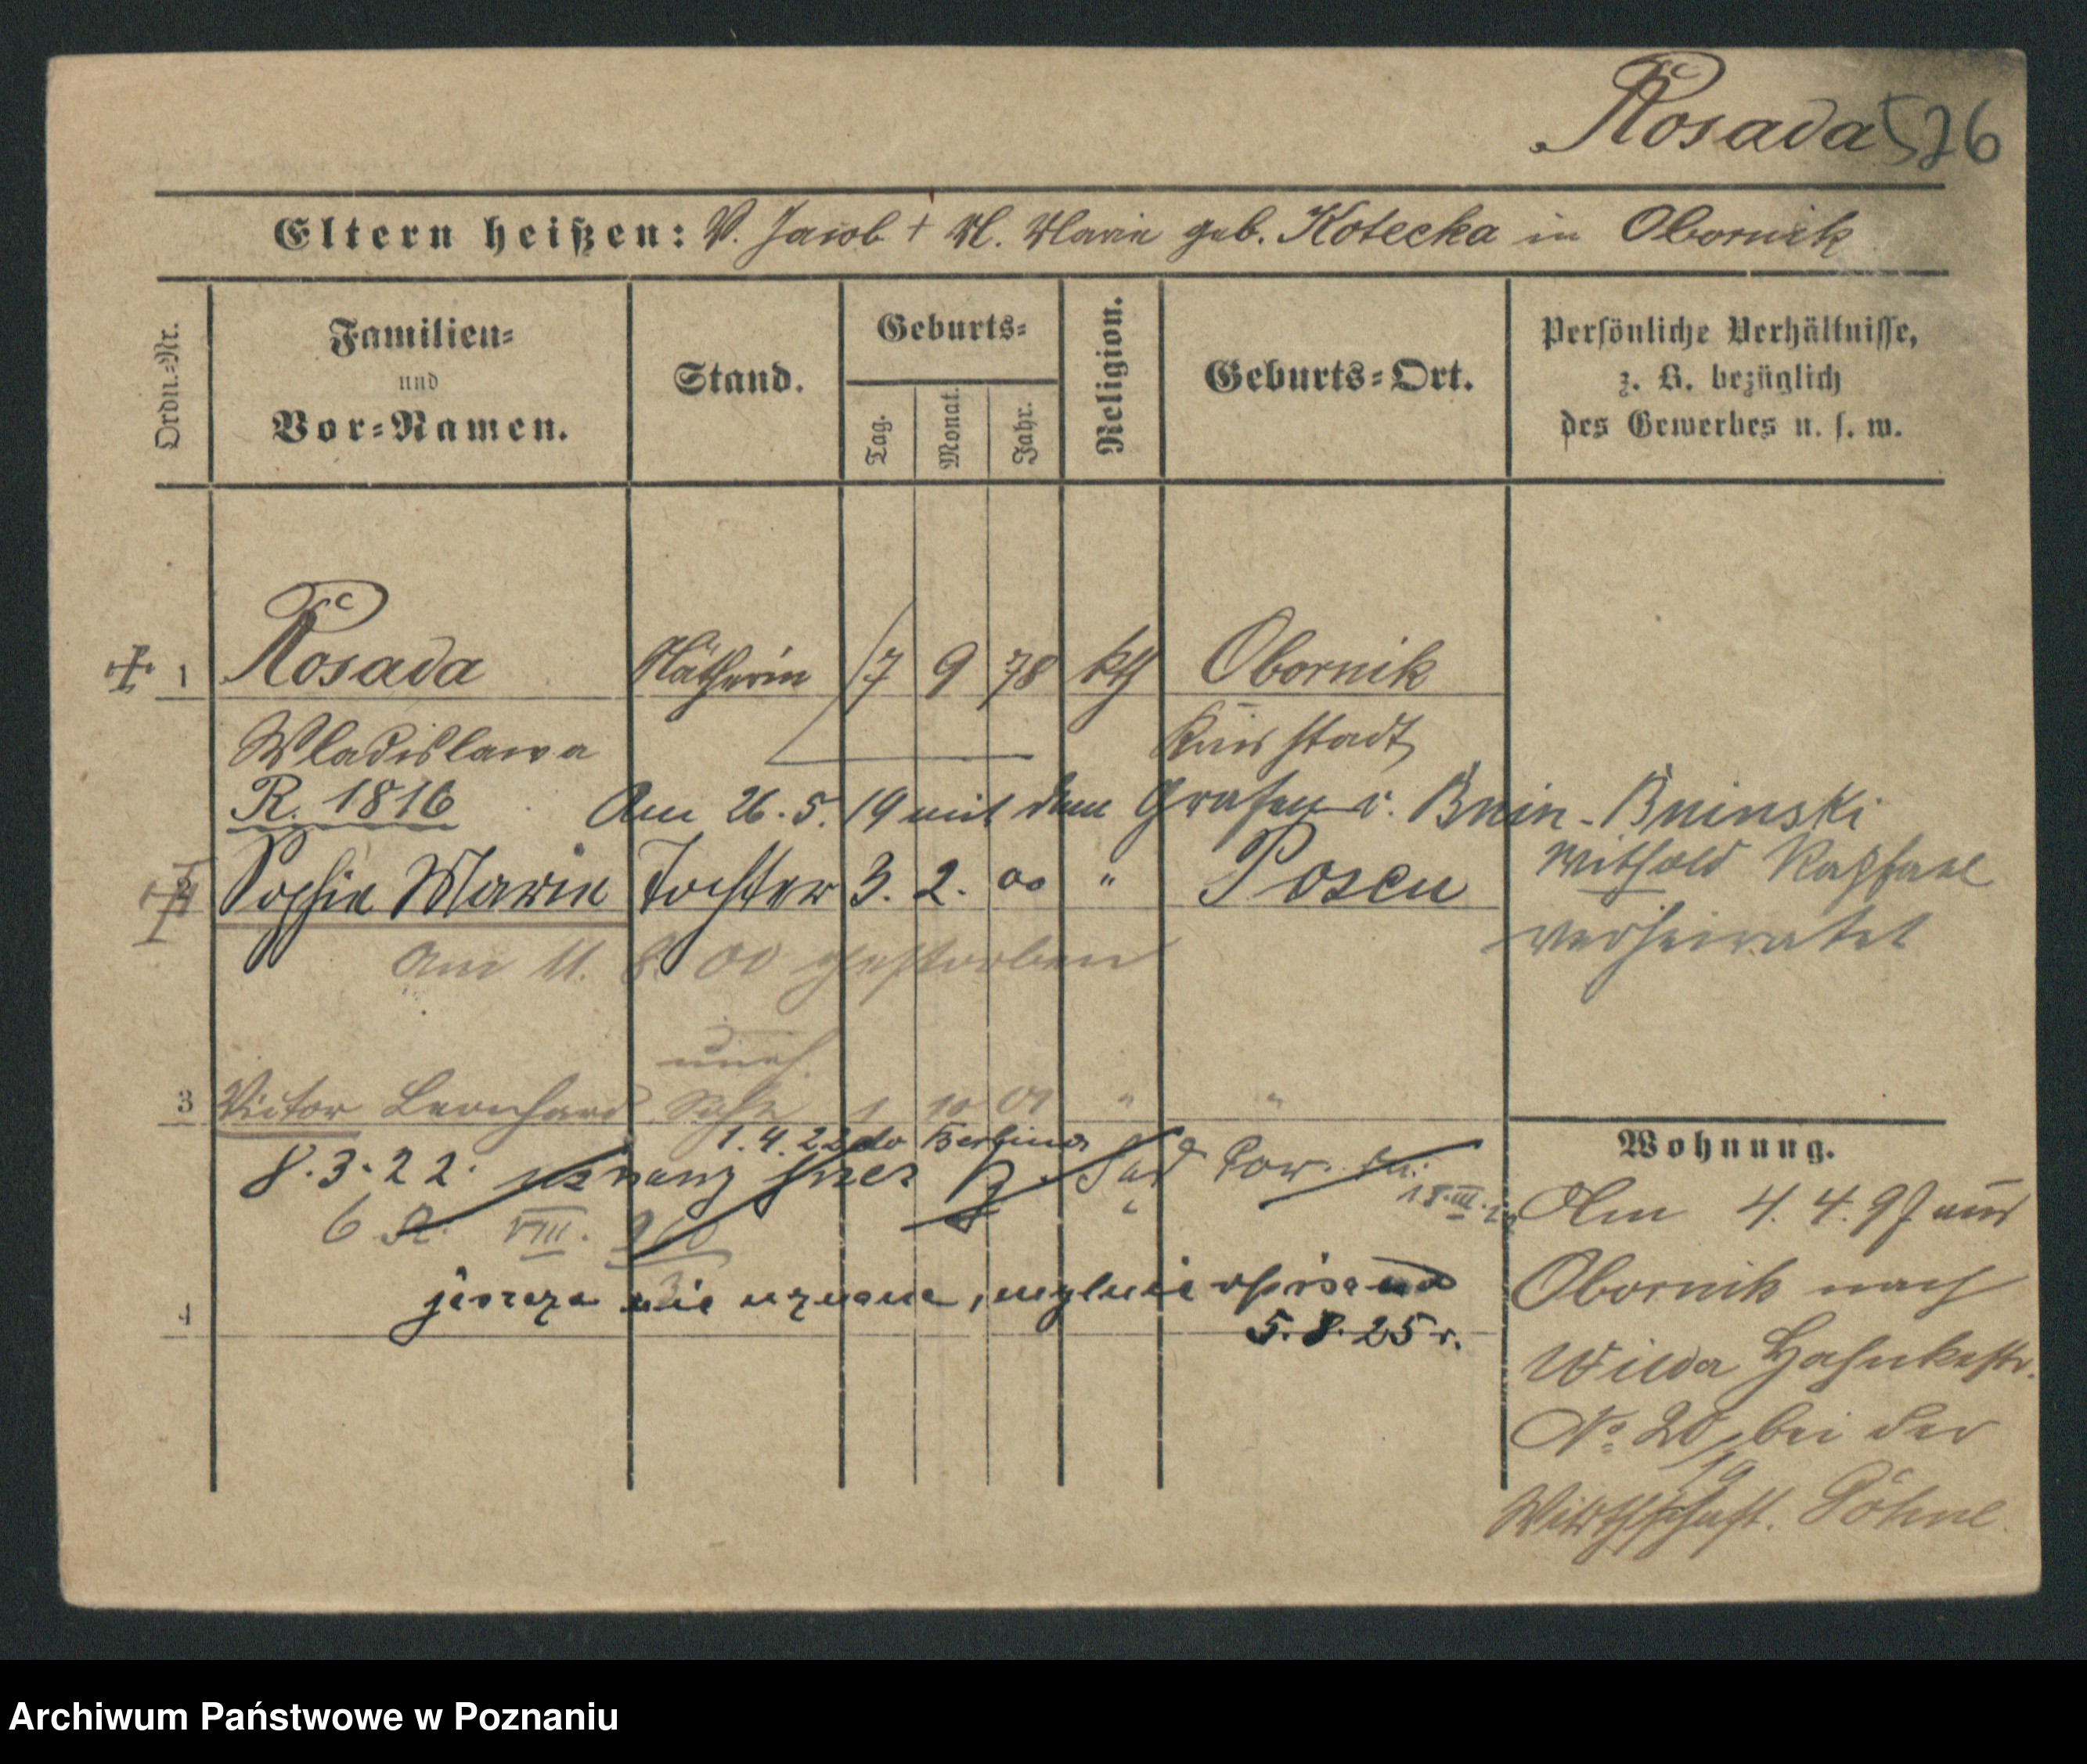 Rosada 526
Eltern heißen: V. Jacob + M. Marie geb. Kotecka in Obornik
Ordn.-Nr.
Familien-
und
Vor-Namen.
Stand.
Geburts-
Tag.
Monat.
Jahr.
Religion.
Geburts-Ort.
Persönliche Verhältnisse,
z. B. bezüglich
des Gewerbes u. s. w.
1 Rosada Nätherin 7 9 78 kth Obornik
Wladislawa Kreisstadt
R. 1816 Am 26.5.19 mit dem Grafen v. Bnin-Bninski
Withold Raphael
verheiratet
2 Sophie Marie Tochter 3. 2. 00 " Posen
am 11. 8. 00 gestorben
uneh.
3 Victor Leonhard Sohn 1 10 01 " "
1.4.22 do Berlina
8.3.22. przez Sąd Pow.
6 R. VIII.
jeszcze nie uznane, mylnie opisano
4 5.8.25 r.
Wohnung.
Am 4.4.97 aus
Obornik nach
Wilda Hahnkestr.
No 20 bei der
19
Wirthschaft.
Archiwum Państwowe w Poznaniu